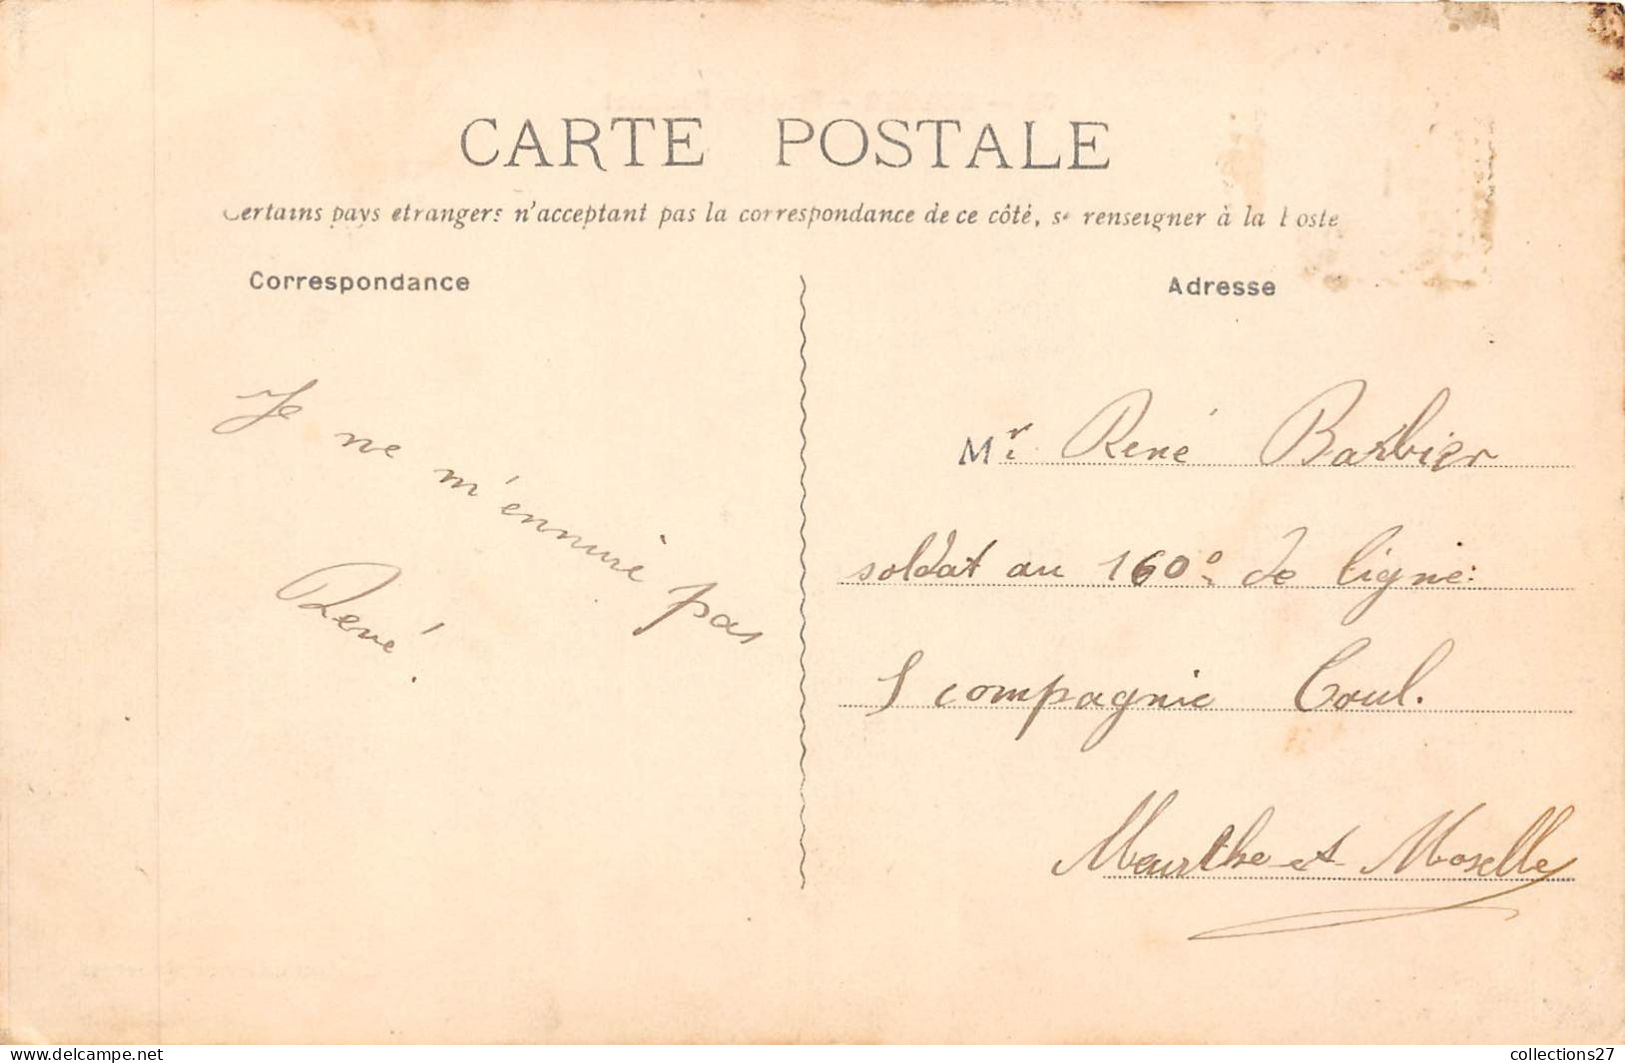 CARTE POSTALE
Certains pays etrangers n'acceptant pas la correspondance de ce côté, se renseigner à la Poste
Correspondance
Adresse
Je ne m'ennuie pas
René.
Mr. René Barbier
soldat au 160e de ligne:
compagnie Toul.
Meurthe et Moselle
collections27